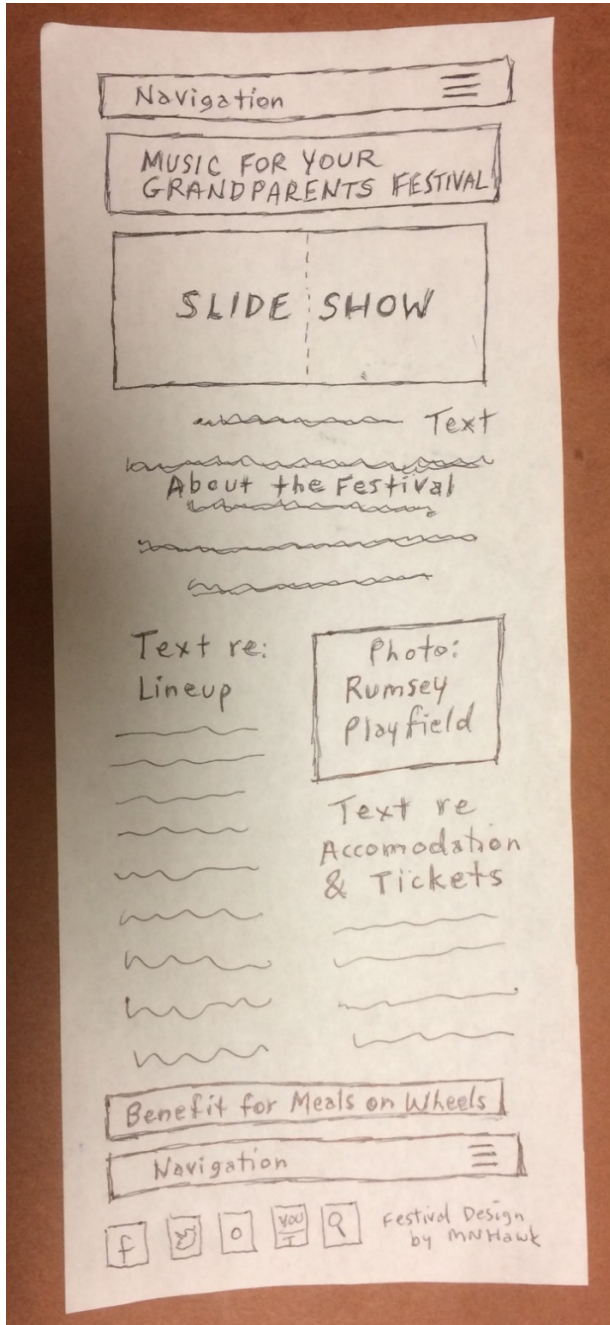 Navigation
MUSIC FOR YOUR
GRANDPARENTS FESTIVAL
SLIDE SHOW
Text
About the Festival
Text re:
Lineup
Photo:
Rumsey
Playfield
Text re
Accomodation
& Tickets
Benefit for Meals on Wheels
Navigation
f
YOU
Festival Design
by MNHawk